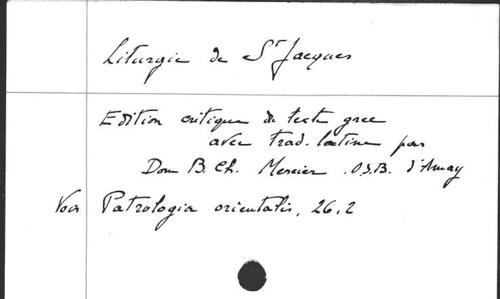 Liturgie de St Jacques
Edition critique du texte grec
avec trad. latine par
Dom B. Ch. Mercier. O.S.B. d'Amay
Voir Patrologia orientalis, 26,2